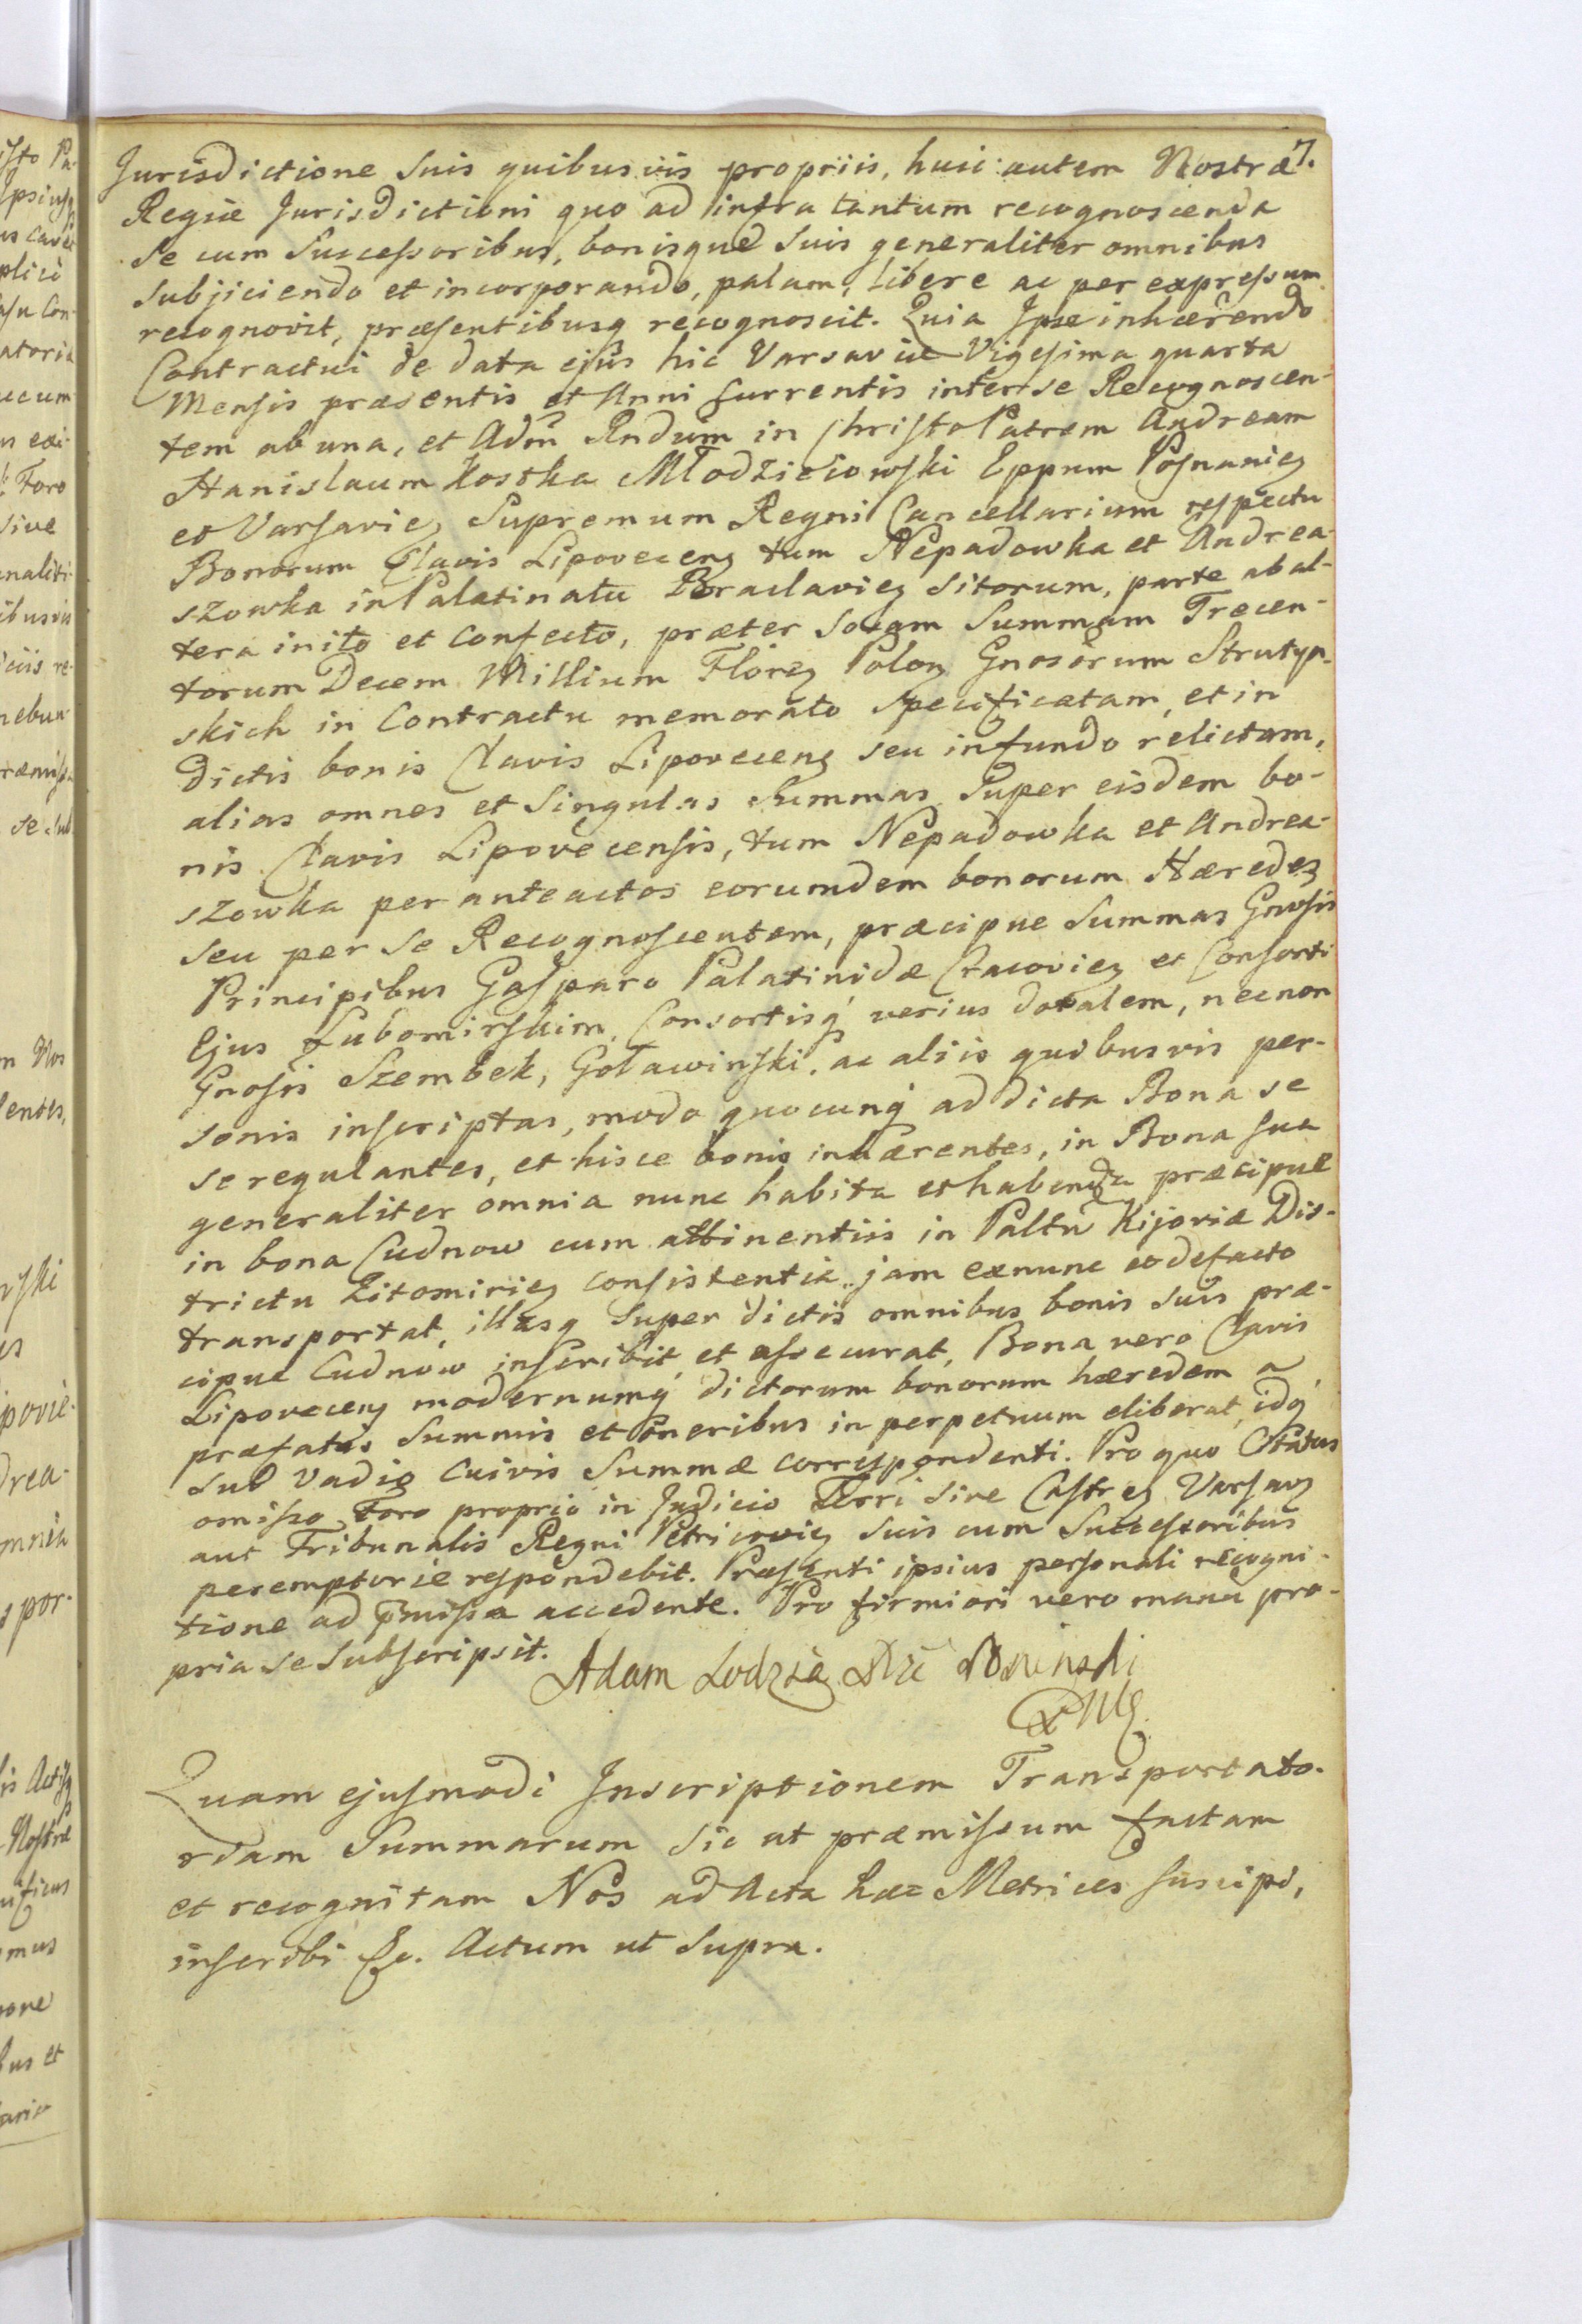 7.
Jurisdictione suis quibusvis propriis, huic autem Nostræ
Regiæ Jurisdictioni quo ad infra tantum recognoscenda
se cum Successoribus, bonisque suis generaliter omnibus
subjiciendo et incorporando, palam, libere ac per expressum
recognovit, præsentibusq recognoscit. Quia Ipse inhærendo
Contractui de data ejus hic Varsaviæ Vigesima quarta
Mensis præsentis et Anni currentis inter se Recognoscen-
tem ab una, et Adm Rndum in Christo Patrem Andream
Stanislaum Kostka Młodzieiowski Eppum Posnaniez
et Varsaviez Supremum Regni Cancellarium respectu
Bonorum Clavis Lipovecenz tum Nepadowka et Andrea-
szowka in Palatinatu Braclaviez sitorum, parte ab al-
tera inito et confecto, præter solam Summam Trecen-
torum Decem Millium Florez Polonz Gnosorum Strutyn-
skich in Contractu memorato specificatam, et in
dictis bonis Clavis Lipovecenz seu in fundo relictam,
alias omnes et singulas Summas super eisdem bo-
nis Clavis Lipovecensis, tum Nepadowka et Andrea-
szowka per anteactos eorumdem bonorum Hæredez
seu per se Recognoscentem, præcipue Summas Gnosis
Principibus Gasparo Palatinidæ Cracoviez et Consorti
Ejus Lubomirskim, Consortisq verius dotalem, necnon
Gnosis Szembek, Goławinski, ac aliis quibusvis per-
sonis inscriptas, modo quocunq ad dicta Bona se
se regulantes, et hisce bonis inhærentes, in Bona sua
generaliter omnia nunc habita et habenda præcipue
in bona Cudnow cum attinentiis in Paltu Kijoviæ Dis-
trictu Zitomiriez consistentia jam exnunc et defacto
transportat, illasq super dictis omnibus bonis suis præ-
cipue Cudnow inscribit et assecurat, Bona vero Clavis
Lipovecenz modernumq dictorum bonorum hæredem a
præfatis Summis et oneribus in perpetuum eliberat, idq
sub vadio cuivis Summæ correspondenti. Pro quo Citatus
omisso Foro proprio in Judicio Terri sive Castrez Varsavz
aut Tribunalis Regni Petricoviez suis cum Successoribus
peremptorie respondebit. Præsenti ipsius personali recogni-
tione ad pmissa accedente. Pro firmiori vero manu pro-
pria se subscripsit.
Adam Lodzia Poninski
Quam ejusmodi Inscriptionem Transportato-
riam Summarum sic ut præmissum factam
et recognitam Nos ad Acta hæc Metrices suscipi,
inscribi &c. Actum ut supra.